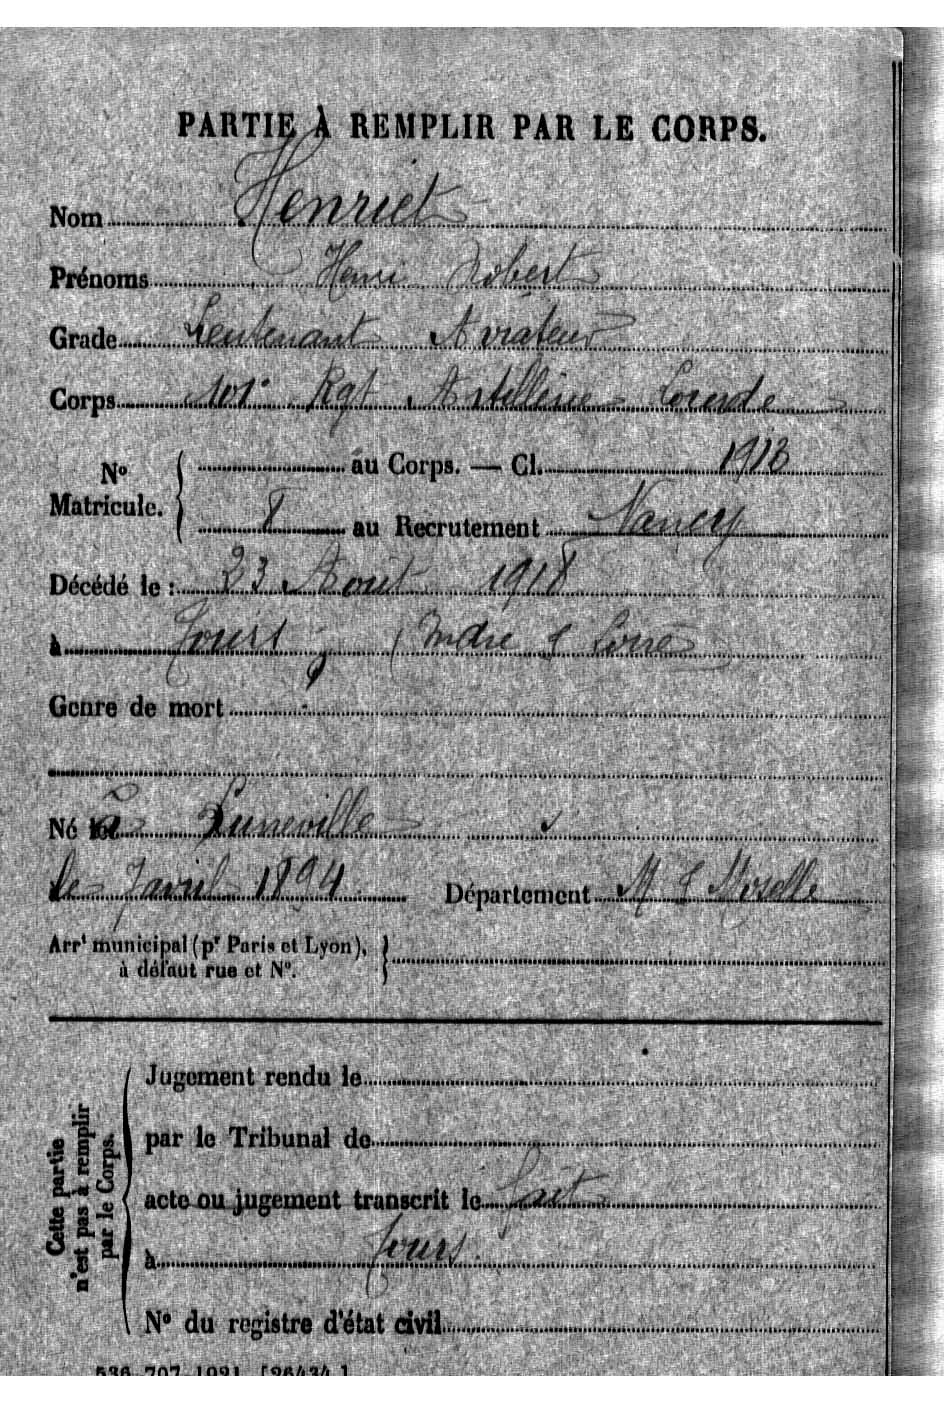 PARTIE À REMPLIR PAR LE CORPS.
Nom Henriet
Prénoms Henri Robert
Grade Lieutenant Aviateur
Corps 101e Rgt Artillerie Lourde
No Matricule. { au Corps. — Cl. 1913
8 au Recrutement Nancy
Décédé le : 23 Août 1918
à Tours (Indre & Loire)
Genre de mort
Né à Luneville
le 7 avril 1894 Département M & Moselle
Arrt municipal (pr Paris et Lyon),
à défaut rue et No.
Cette partie n'est pas à remplir par le Corps.
Jugement rendu le
par le Tribunal de
acte ou jugement transcrit le fait
à Tours.
No du registre d'état civil
536-707-1921. [26434.]